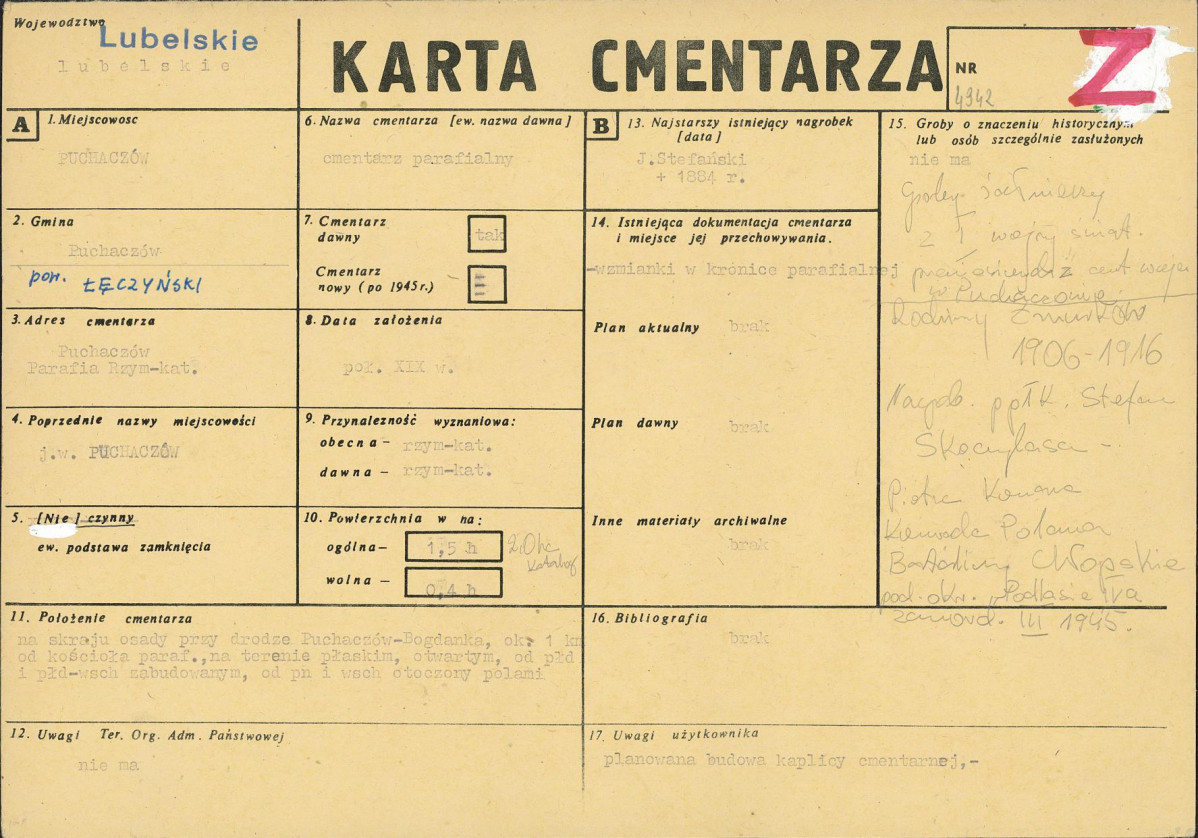 Województwo
Lubelskie
lubelskie
KARTA CMENTARZA
NR
4942
Z
A
1. Miejscowosc
PUCHACZÓW
2. Gmina
Puchaczów
pow. ŁĘCZYŃSKI
3. Adres cmentarza
Puchaczów
Parafia Rzym-kat.
4. Poprzednie nazwy miejscowości
j.w. PUCHACZÓW
5. [Nie] czynny
ew. podstawa zamknięcia
6. Nazwa cmentarza [ew. nazwa dawna]
cmentarz parafialny
7. Cmentarz
dawny
tak
Cmentarz
nowy (po 1945 r.)
8. Data założenia
poł. XIX w.
9. Przynalezność wyznaniowa:
obecna – rzym-kat.
dawna – rzym-kat.
10. Powierzchnia w ha:
ogólna – 1,5 h
2,0 ha
katalog
wolna – 0,4 h
B
13. Najstarszy istniejący nagrobek
[data]
J.Stefański
+ 1884 r.
14. Istniejąca dokumentacja cmentarza
i miejsce jej przechowywania.
-wzmianki w kronice parafialnej
Plan aktualny brak
Plan dawny brak
Inne materiały archiwalne
brak
15. Groby o znaczeniu historycznym
lub osób szczególnie zasłużonych
nie ma
Groby żołnierzy
z I wojny świat.
cment wojen
w Puchaczowie
Rodziny
1906-1916
Nagrob. ppłk. Stefan
Piotra
Konrada
Bataliony Chłopskie
pod. okr. "Podlasie IVa
zamord. III 1945.
11. Położenie cmentarza
na skraju osady przy drodze Puchaczów-Bogdanka, ok. 1 km
od kościoła paraf., na terenie płaskim, otwartym, od płd
i płd-wsch zabudowanym, od pn i wsch otoczony polami
16. Bibliografia
brak
12. Uwagi Ter. Org. Adm. Państwowej
nie ma
17. Uwagi użytkownika
planowana budowa kaplicy cmentarnej,-